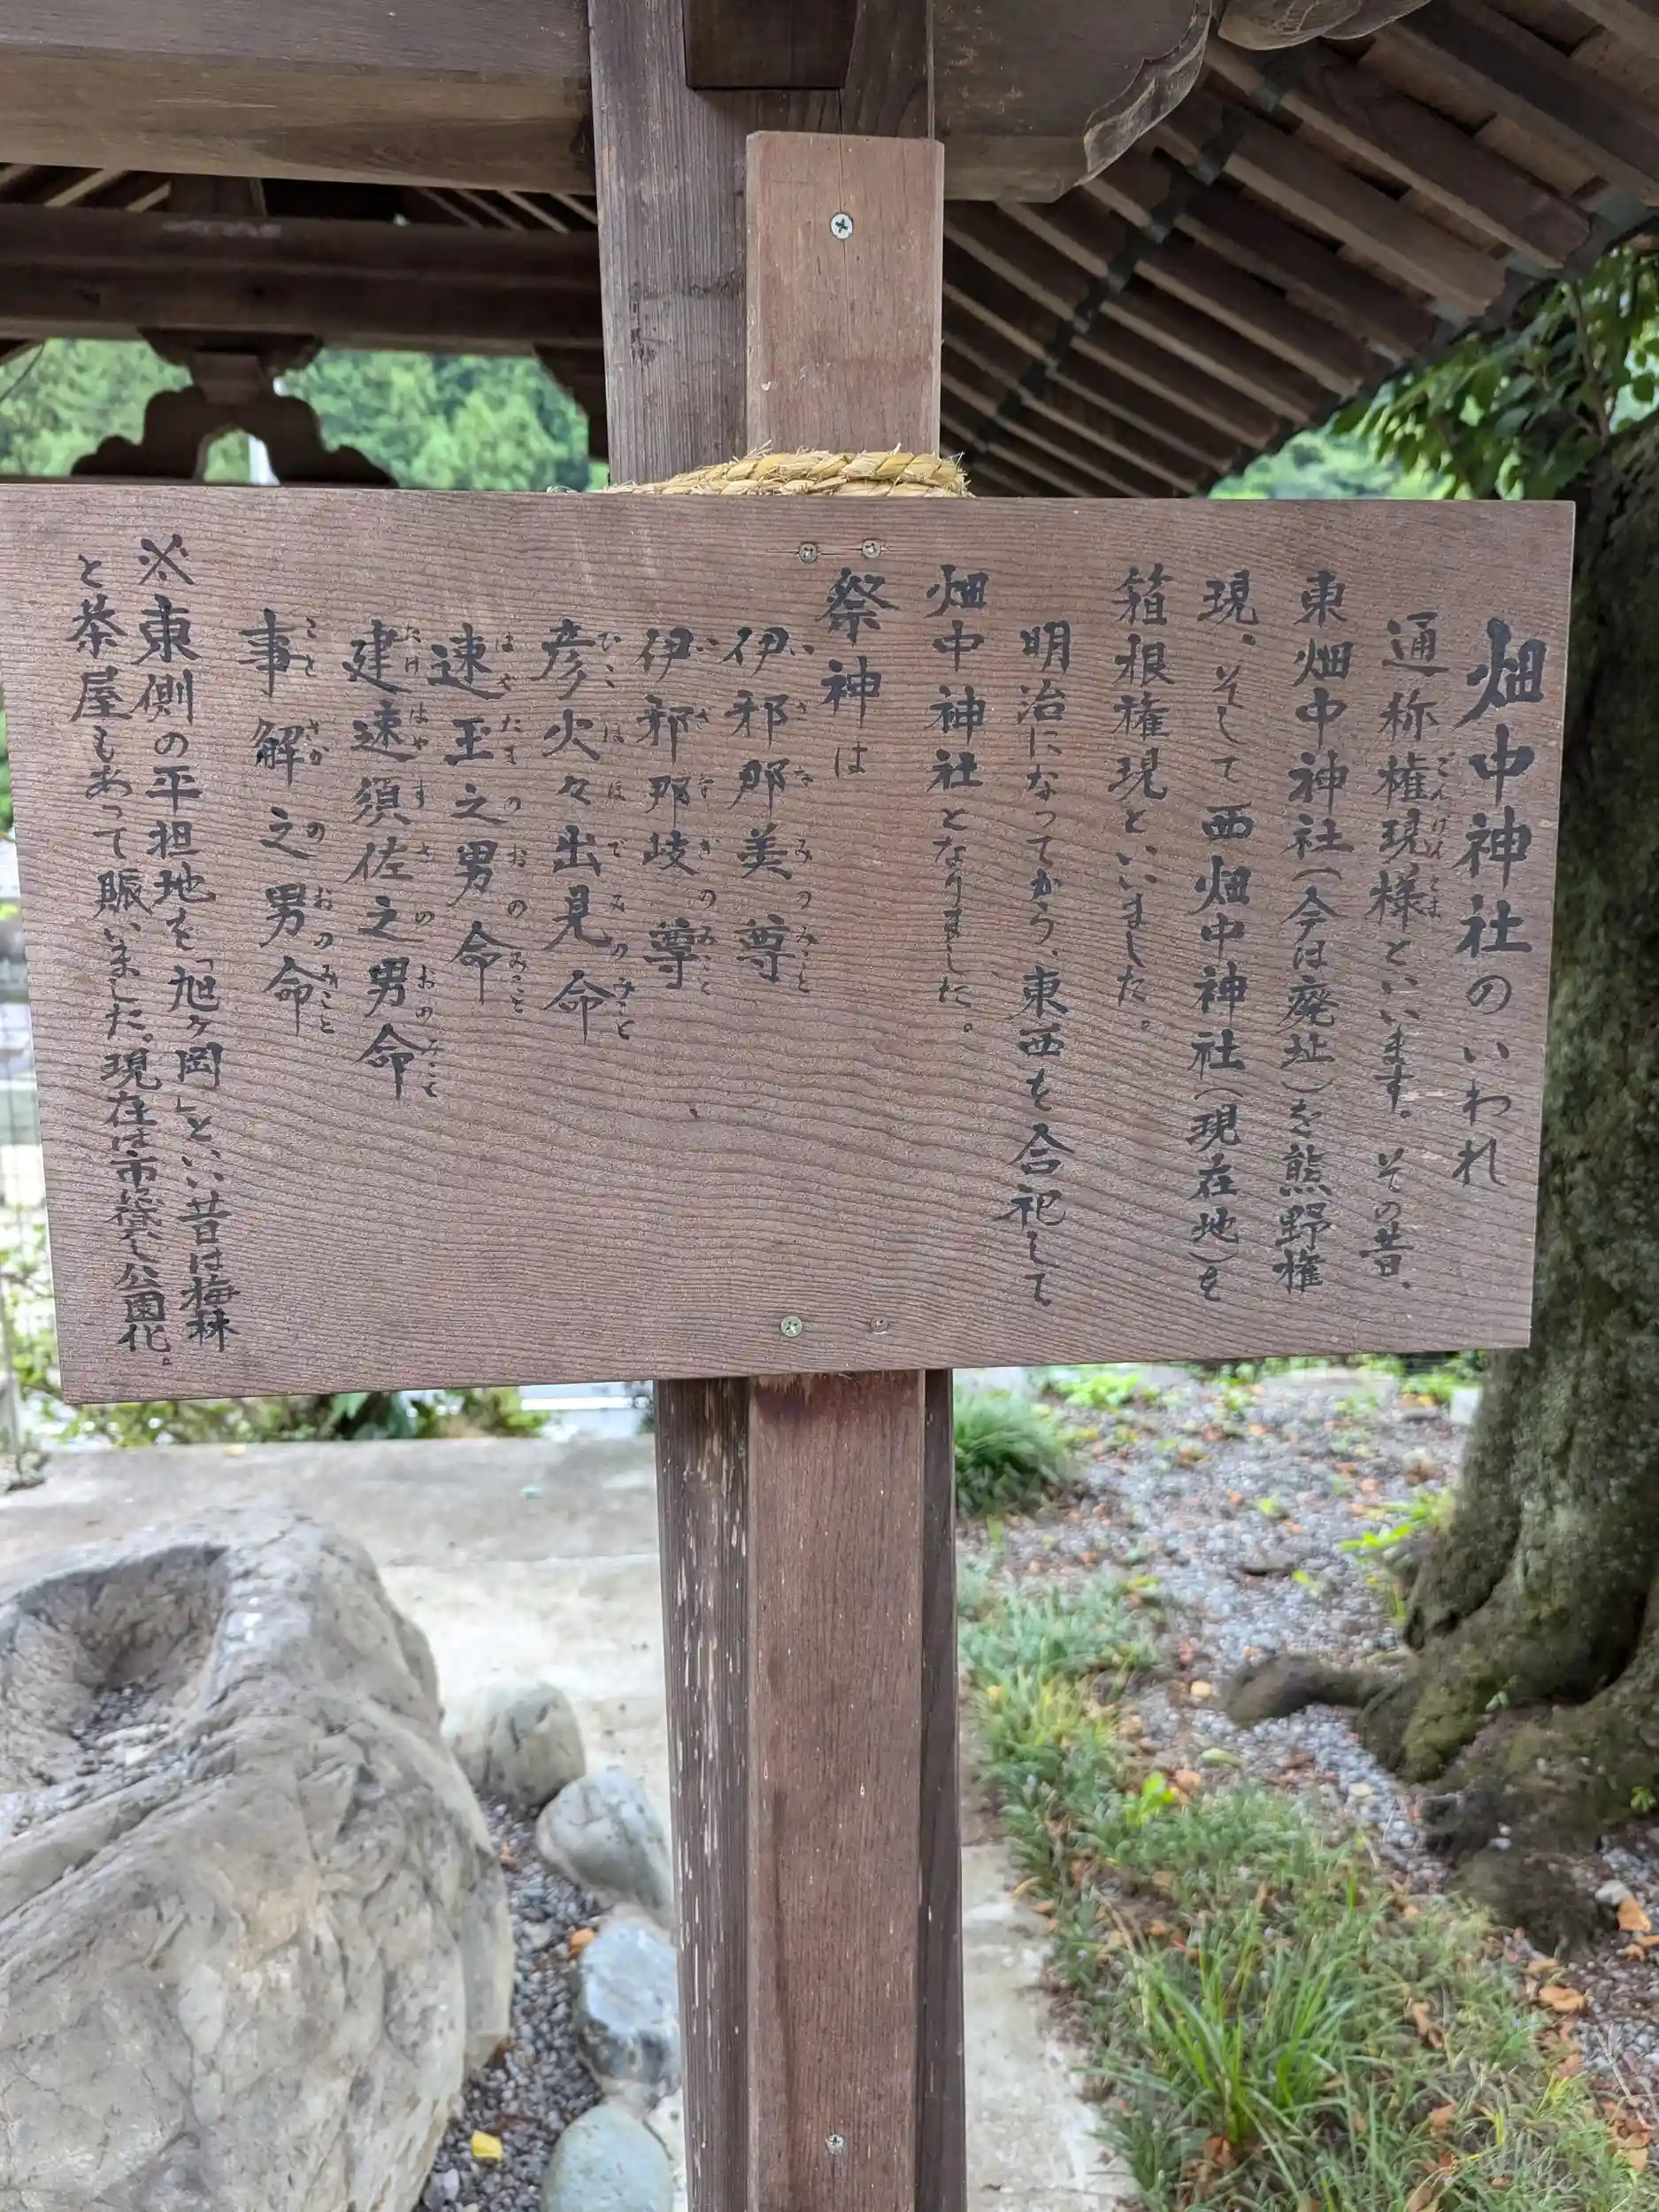 畑中神社のいわれ
通称権現様といいます。その昔、
東畑中神社(今は廃址)を熊野権
現、そして西畑中神社(現在地)を
箱根権現といいました。
明治になってから、東西を合祀して
畑中神社となりました。
祭神は
伊邪那美尊
伊邪那岐尊
彦火々出見命
速玉之男命
建速須佐之男命
事解之男命
※東側の平担地を「旭ヶ岡」といい昔は梅林
と茶屋もあって賑いました。現在は市に貸し公園化。